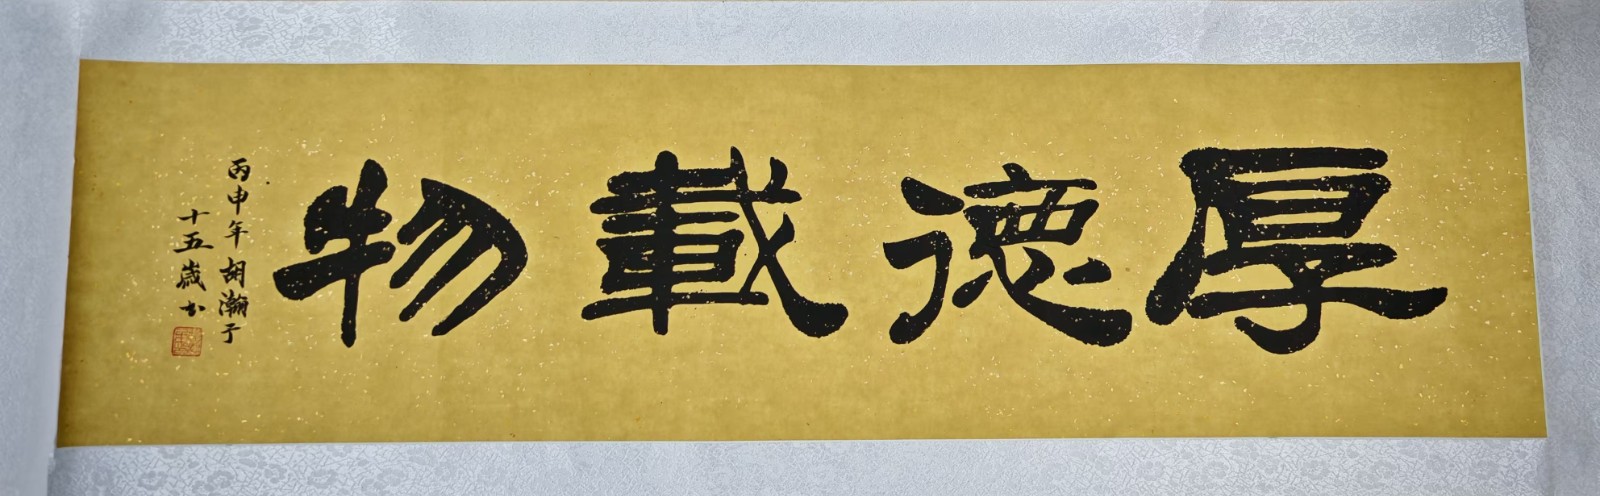 厚德載物
丙申年胡瀚于
十五歲书